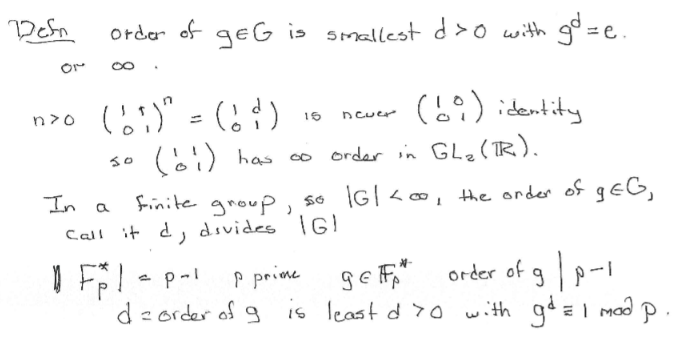 Defn order of g∈G is smallest d>0 with g^d=e.
or ∞.
n>0 (1 1; 0 1)^n = (1 d; 0 1) is never (1 0; 0 1) identity
so (1 1; 0 1) has ∞ order in GL₂(ℝ).
In a finite group, so |G|<∞, the order of g∈G,
call it d, divides |G|
|𝔽_p^*| = p-1 p prime g∈𝔽_p^* order of g | p-1
d = order of g is least d>0 with g^d ≡ 1 mod p.